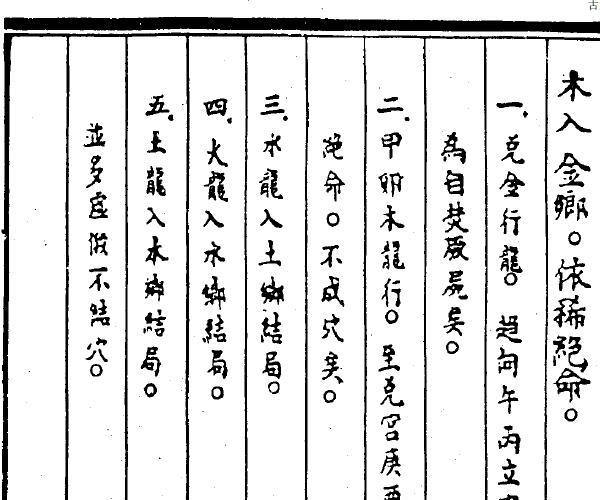 木入金鄉。依稀絕命。
一、兌金行龍。趨向午丙立
為自焚厥屍矣。
二、甲卯木龍行。至兌宮庚酉
絕命。不成穴矣。
三、水龍入土鄉結局。
四、火龍入水鄉結局。
五、土龍入木鄉結局。
並多虛假不結穴。
古